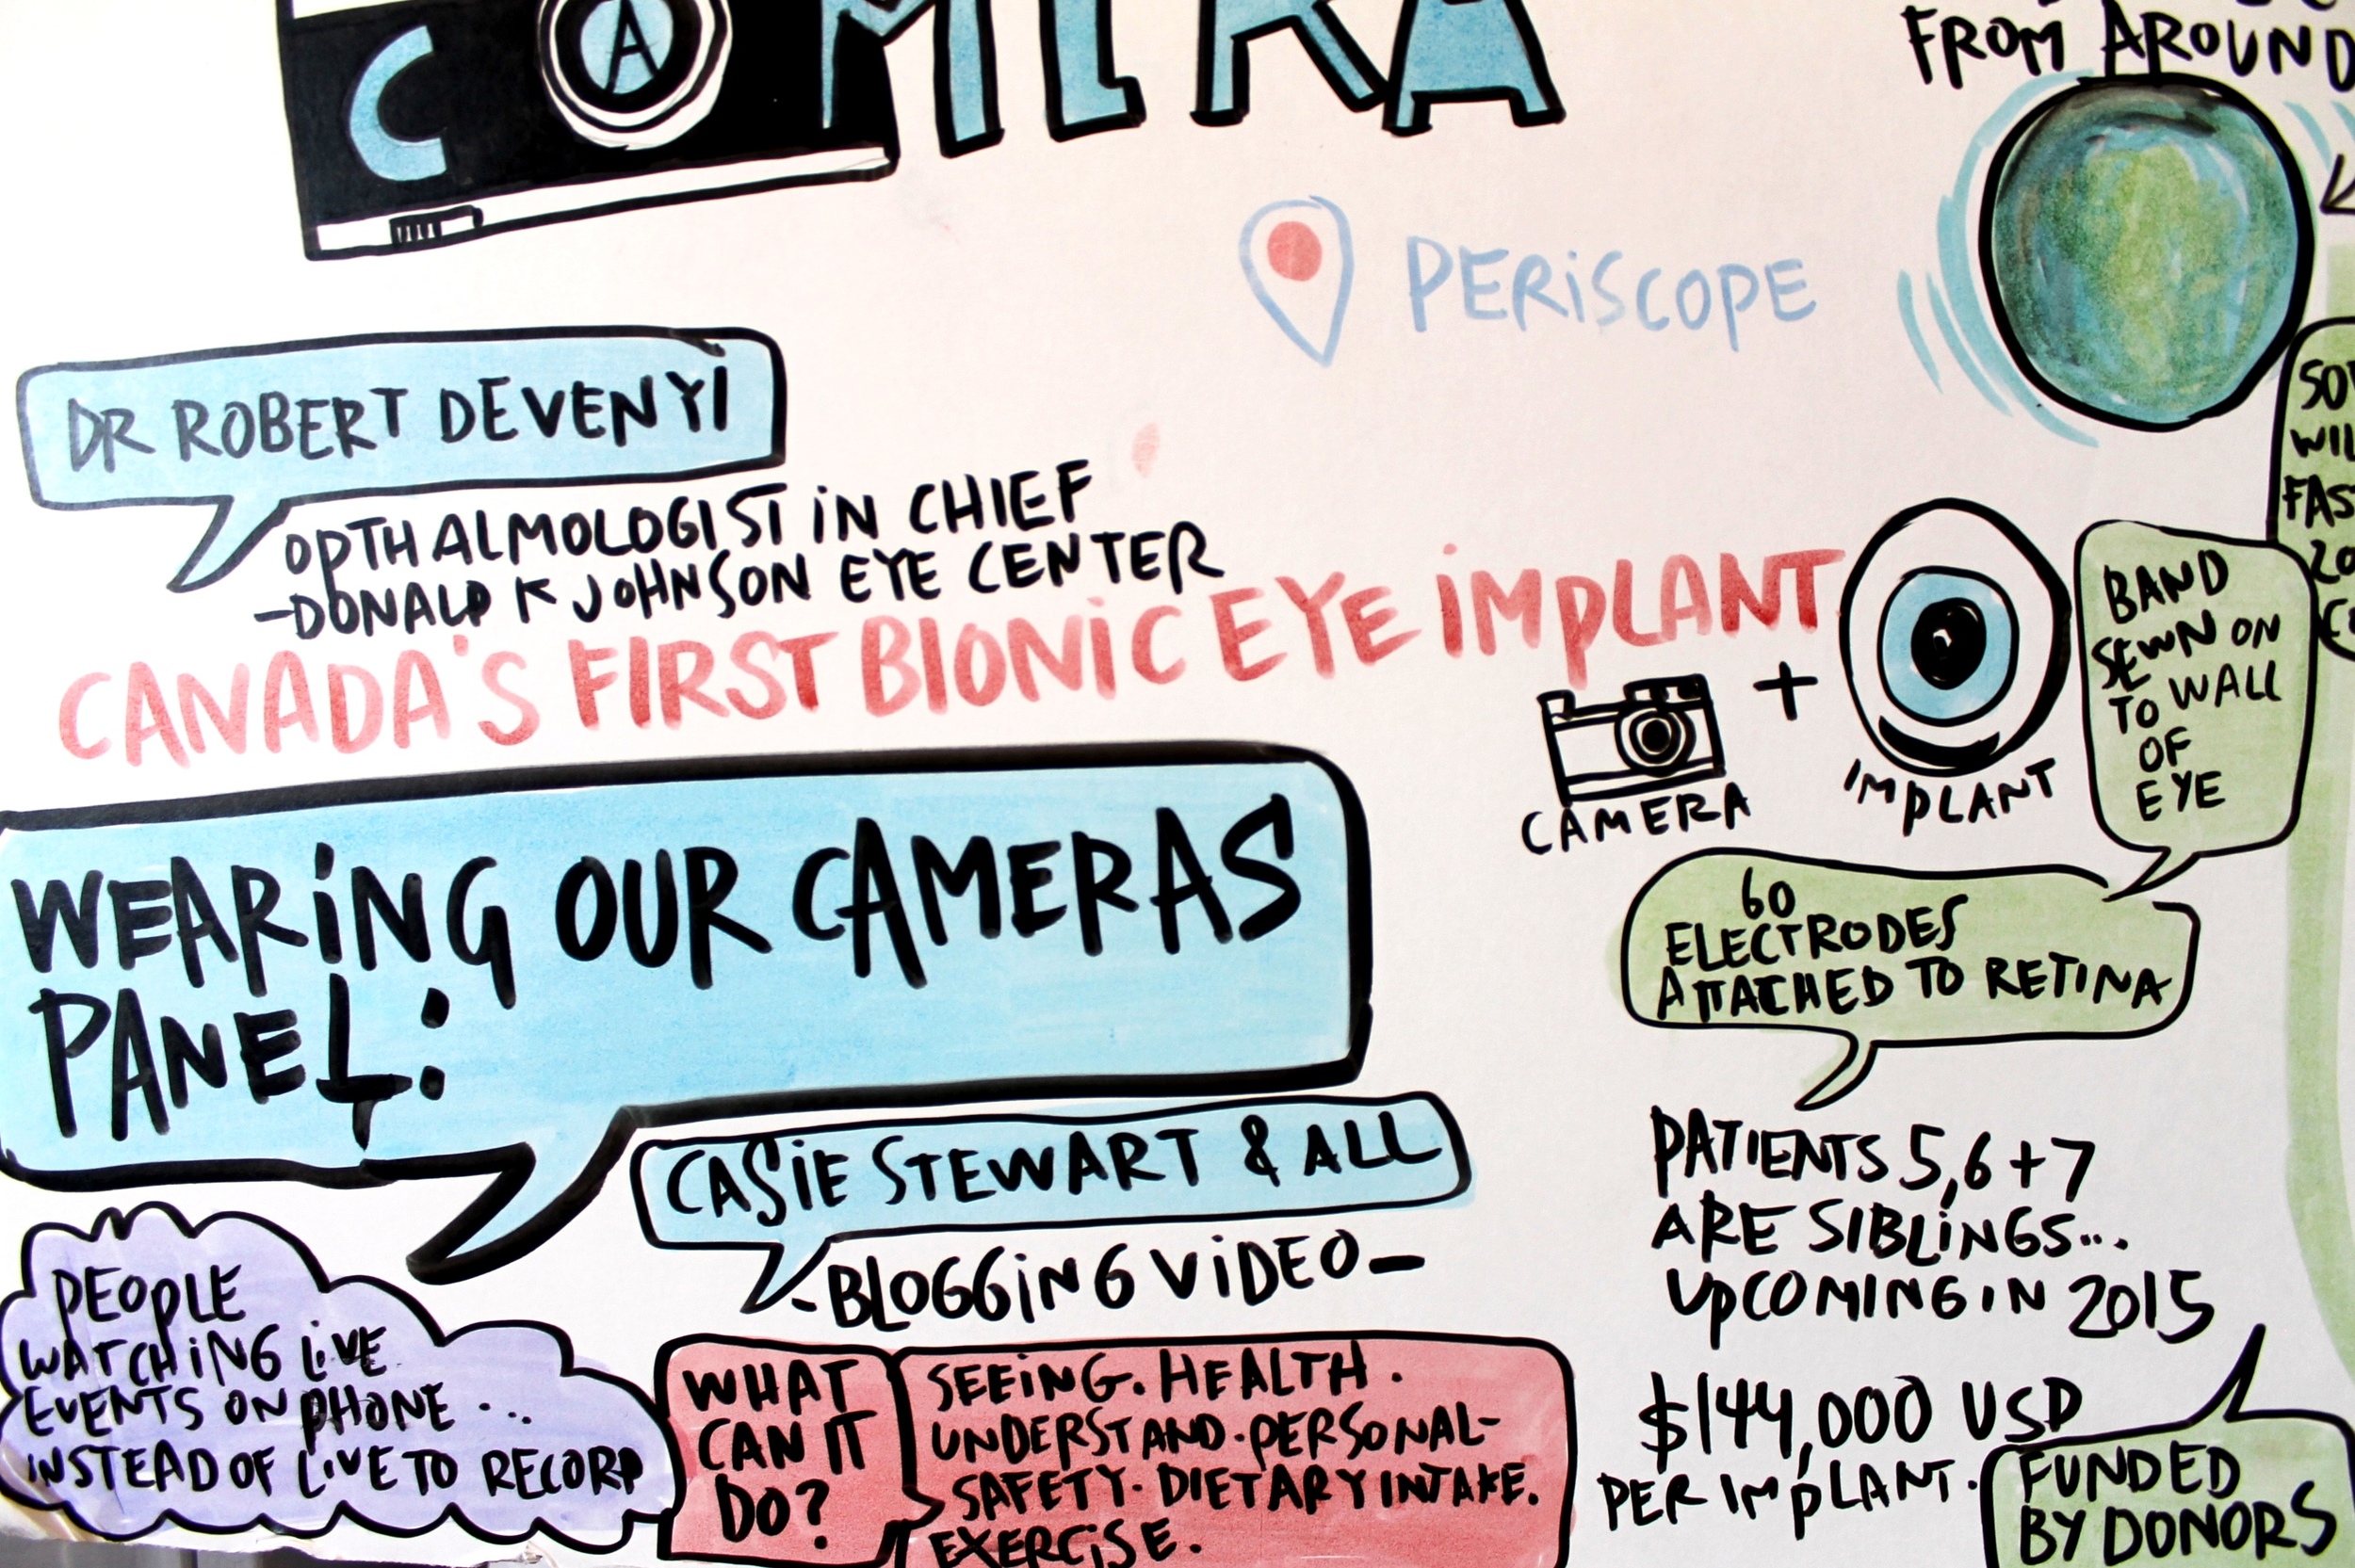 CAMERA
FROM AROUND
PERISCOPE
DR ROBERT DEVENYI
OPTHALMOLOGIST IN CHIEF
-DONALD K JOHNSON EYE CENTER
CANADA'S FIRST BIONIC EYE IMPLANT
CAMERA
+
IMPLANT
BAND
SEWN ON
TO WALL
OF
EYE
60
ELECTRODES
ATTACHED TO RETINA
PATIENTS 5,6+7
ARE SIBLINGS...
UPCOMING IN 2015
$144,000 USD
PER IMPLANT.
FUNDED
BY DONORS
WEARING OUR CAMERAS
PANEL:
CASIE STEWART & ALL
-BLOGGING VIDEO-
PEOPLE
WATCHING LIVE
EVENTS ON PHONE ...
INSTEAD OF LIVE TO RECORD
WHAT
CAN IT
DO?
SEEING. HEALTH.
UNDERSTAND.PERSONAL-
SAFETY. DIETARY INTAKE.
EXERCISE.